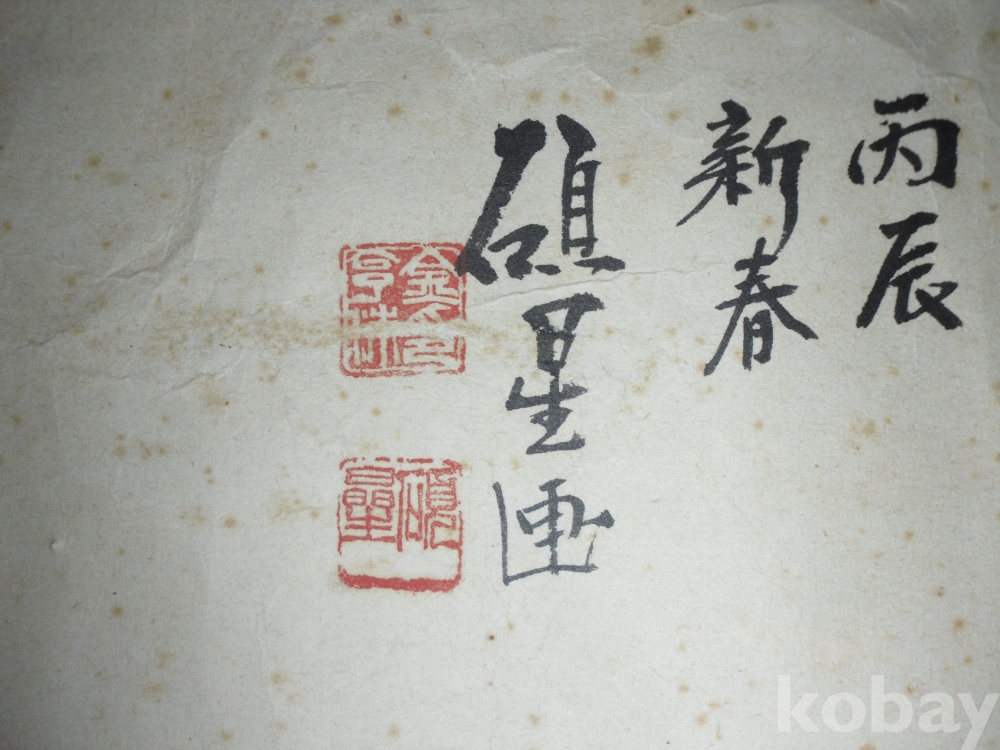 丙辰
新春
碩星画
碩星
kobay